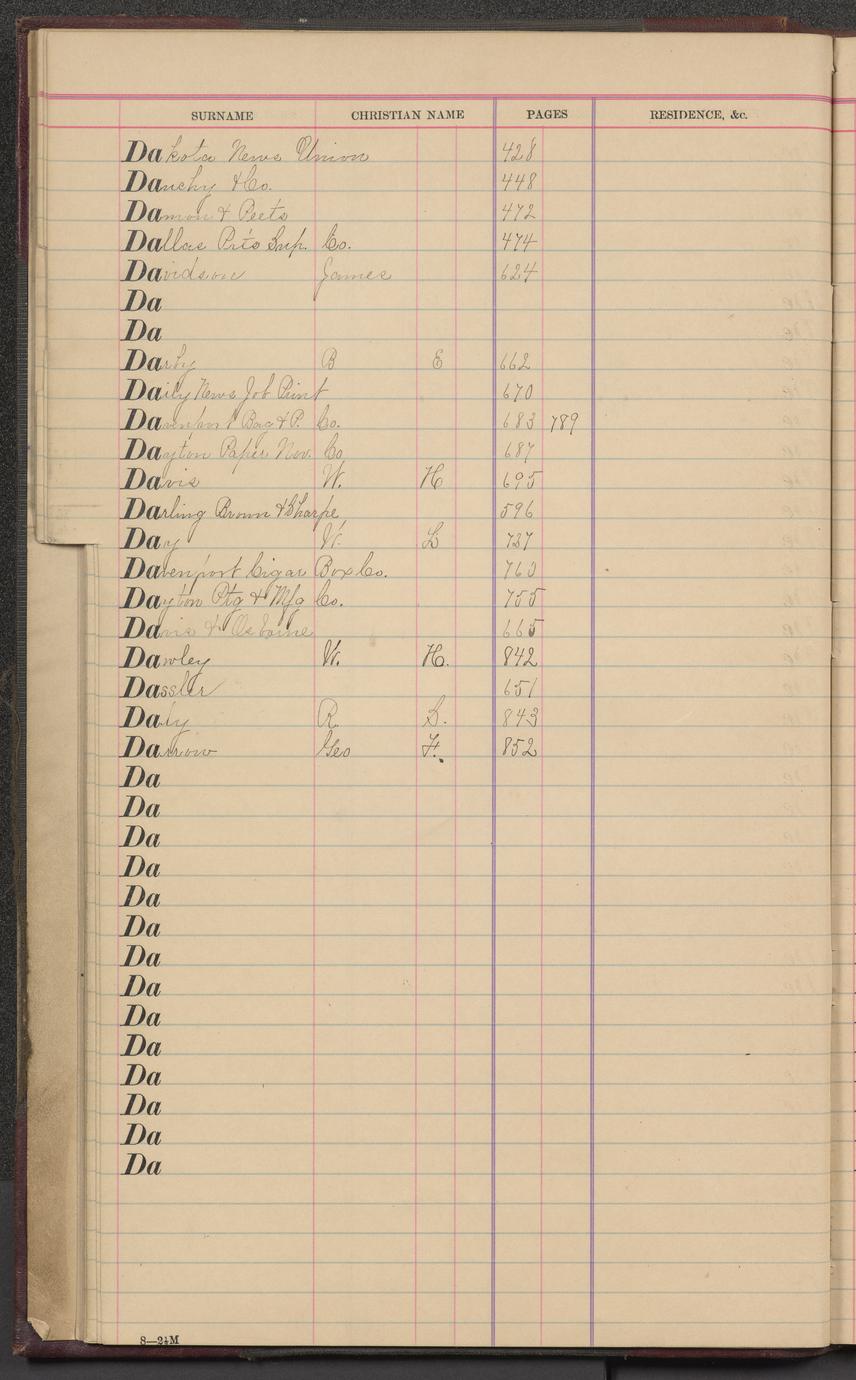 SURNAME CHRISTIAN NAME PAGES RESIDENCE, &c.
Dakota News Union 428
Dauchy & Co. 448
Damon & Peets 472
Dallas Pr'ts Sup. Co. 474
Davidson James 624
Da
Da
Darby B E 662
Daily News Job Print 670
Davenport Bag & P. Co. 683 789
Dayton Paper Nov. Co 687
Davis W. H 695
Darling Brown & Sharpe 596
Day W. L 737
Davenport Cigar Box Co. 763
Dayton Ptg & Mfg Co. 755
Davis & Osborne 665
Dawley W. H. 842
Dassler 651
Daly R. S. 843
Darrow Geo F. 852
Da
Da
Da
Da
Da
Da
Da
Da
Da
Da
Da
Da
Da
Da
8—2½M